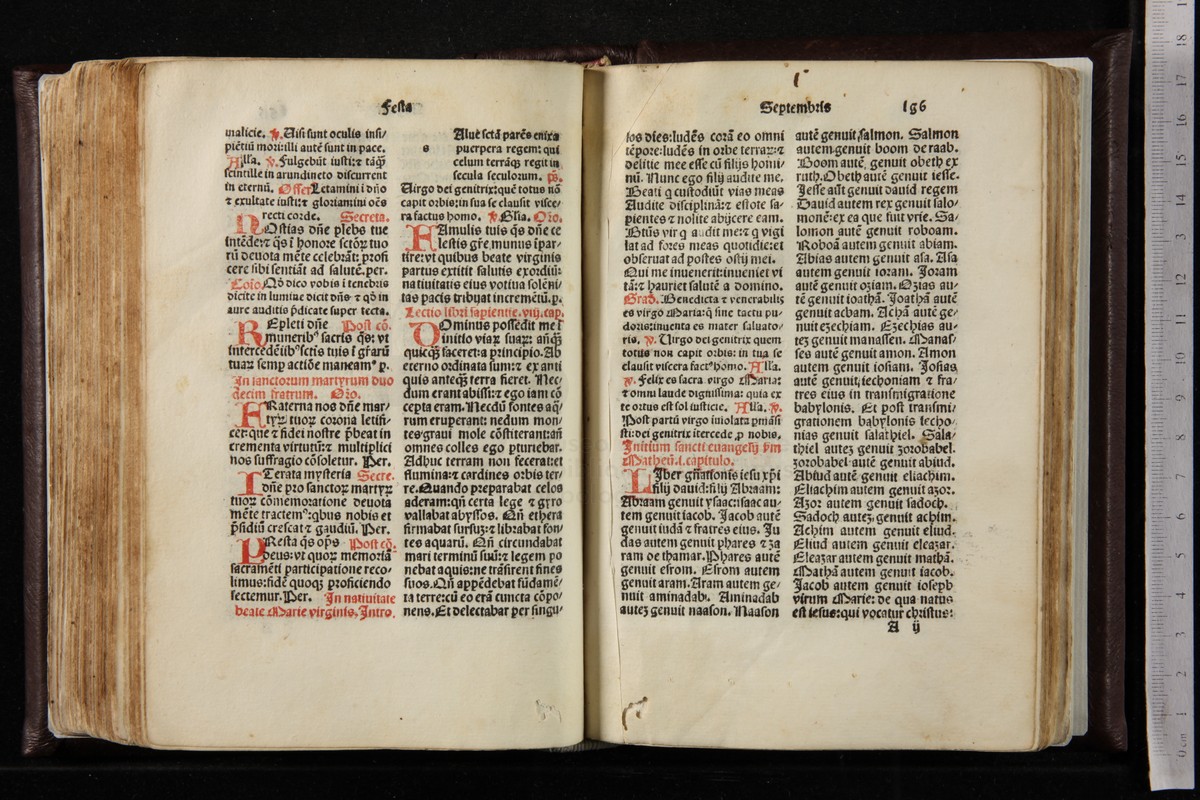 Festa
malicie. ℣. Uisi sunt oculis insi/
piētiū mori: illi autē sunt in pace.
Alla. ℣. Fulgebūt iusti: ⁊ tāꝙ
scintille in arundineto discurrent
in eternū. Offer Letamini ī dño
⁊ exultate iusti: ⁊ gloriamini oēs
recti corde. Secreta.
HOstias dñe plebs tue
intēde: ⁊ qs ī honore sctōꝝ tuo
rū deuota mēte celebrāt: profi
cere sibi sentiāt ad salutē. per.
Coīo. Qđ dico vobis ī tenebris
dicite in lumine dicit dñs ⁊ qđ in
aure auditis p̄dicate super tecta.
REpleti dñe Post cō.
munerib⁹ sacris qs: vt
intercedētib⁹ sctis tuis ī grārū
tuaꝝ semp actiōe maneam⁹ p.
In sanctorum martyrum duo
decim fratrum. Oro.
FRaterna nos dñe mar/
tyꝝ tuoꝝ corona letifi/
cet: que ⁊ fidei nostre p̄beat in
crementa virtutū: ⁊ multiplici
nos suffragio cōsoletur. Per.
TErata mysteria Secre.
dñe pro sanctoꝝ martyꝝ
tuoꝝ cōmemoratione deuota
mēte tractem⁹: qbus nobis et
p̄sidiū crescat ⁊ gaudiū. Per.
PResta qs ops Post cō.
deus: vt quoꝝ memoriā
sacramēti participatione reco/
limus: fidē quoqꝫ proficiendo
sectemur. Per. In natiuitate
beate Marie virginis. Intro.
s Alue sctā parēs enixa
puerpera regem: qui
celum terrāqꝫ regit in
secula seculorum. ps.
Uirgo dei genitrix: quē totus nō
capit orbis: in tua se clausit visce/
ra factus homo. ℣ Glia. Oro.
FAmulis tuis qs dñe ce
lestis grē munus īpar/
tire: vt quibus beate virginis
partus extitit salutis exordiū:
natiuitatis eius votiua solēni/
tas pacis tribuat incremētū. p.
Lectio libri sapientie. viij. cap.
DOminus possedit me ī
initio viaꝝ suaꝝ: anq̄ꝫ
quicq̄ꝫ faceret: a principio. Ab
eterno ordinata sum: ⁊ ex anti
quis anteqꝫ terra fieret. Nec/
dum erant abissi: ⁊ ego iam cō
cepta eram. Necdū fontes aq̄/
rum eruperant: nedum mon/
tes graui mole cōstiterant: añ
omnes colles ego pturiebar.
Adhuc terram non fecerat: et
flumina: ⁊ cardines orbis ter/
re. Quando preparabat celos
aderam: qñ certa lege ⁊ gyro
vallabat abyssos. Qñ ethera
firmabat sursuꝫ: ⁊ librabat fon/
tes aquarū. Qñ circundabat
mari terminū suū: ⁊ legem po
nebat aquis: ne trāsirent fines
suos. Qñ appēdebat fūdamē/
ta terre: cū eo erā cuncta cōpo/
nens. Et delectabar per singu/
Septembris 196
los dies: ludēs corā eo omni
tēpore: ludēs in orbe terraꝝ: ⁊
delitie mee esse cū filijs homi/
nū. Nunc ergo filij audite me.
Beati q custodiūt vias meas
Audite disciplinā: ⁊ estote sa/
pientes ⁊ nolite abijcere eam.
Btūs vir q audit me: ⁊ q vigi
lat ad fores meas quotidie: et
obseruat ad postes ostij mei.
Qui me inuenerit: inueniet vi
tā: ⁊ hauriet salutē a domino.
Grad. Benedicta ⁊ venerabilis
es virgo Maria: q sine tactu pu/
doris: inuenta es mater saluato/
ris. ℣. Uirgo dei genitrix quem
totus non capit orbis: in tua se
clausit viscera fact⁹ homo. Alla.
℣. Felix es sacra virgo Maria:
⁊ omni laude dignissima: quia ex
te ortus est sol iusticie. Alla. ℣.
Post partū virgo inuiolata pmāsi
sti: dei genitrix ītercede ꝓ nobis.
Initium sancti euangelij ẜm
Matheū. i. capitulo.
LIber gñationis iesu xpi
filij dauid: filij Abraam:
Abraam genuit ysaac: isaac au/
tem genuit iacob. Jacob autē
genuit iudā ⁊ fratres eius. Ju
das autem genuit phares ⁊ za
ram de thamar. Phares autē
genuit esrom. Esrom autem
genuit aram. Aram autem ge/
nuit aminadab. Aminadab
auteꝫ genuit naason. Naason
autē genuit salmon. Salmon
autem genuit boom de raab.
Boom autē genuit obeth ex
ruth. Obeth autē genuit iesse.
Jesse aūt genuit dauid regem
Dauid autem rex genuit salo/
monē: ex ea que fuit vrie. Sa/
lomon autē genuit roboam.
Roboā autem genuit abiam.
Abias autem genuit asa. Asa
autem genuit ioram. Joram
autē genuit oziam. Ozias au/
tē genuit ioathā. Joathā autē
genuit acham. Achā autē ge/
nuit ezechiam. Ezechias au/
teꝫ genuit manassen. Manas/
ses autē genuit amon. Amon
autem genuit iosiam. Josias
autē genuit iechoniam ⁊ fra/
tres eius in transmigratione
babylonis. Et post transmi/
grationem babylonis iecho/
nias genuit salathiel. Sala/
thiel auteꝫ genuit zorobabel.
zorobabel autē genuit abiud.
Abiud autē genuit eliachim.
Eliachim autem genuit azor.
Azor autem genuit sadoch.
Sadoch auteꝫ genuit achim.
Achim autem genuit eliud.
Eliud autem genuit eleazar.
Eleazar autem genuit mathā.
Mathā autem genuit iacob.
Jacob autem genuit ioseph
virum Marie: de qua natus
est iesus: qui vocatur christus:
A ij